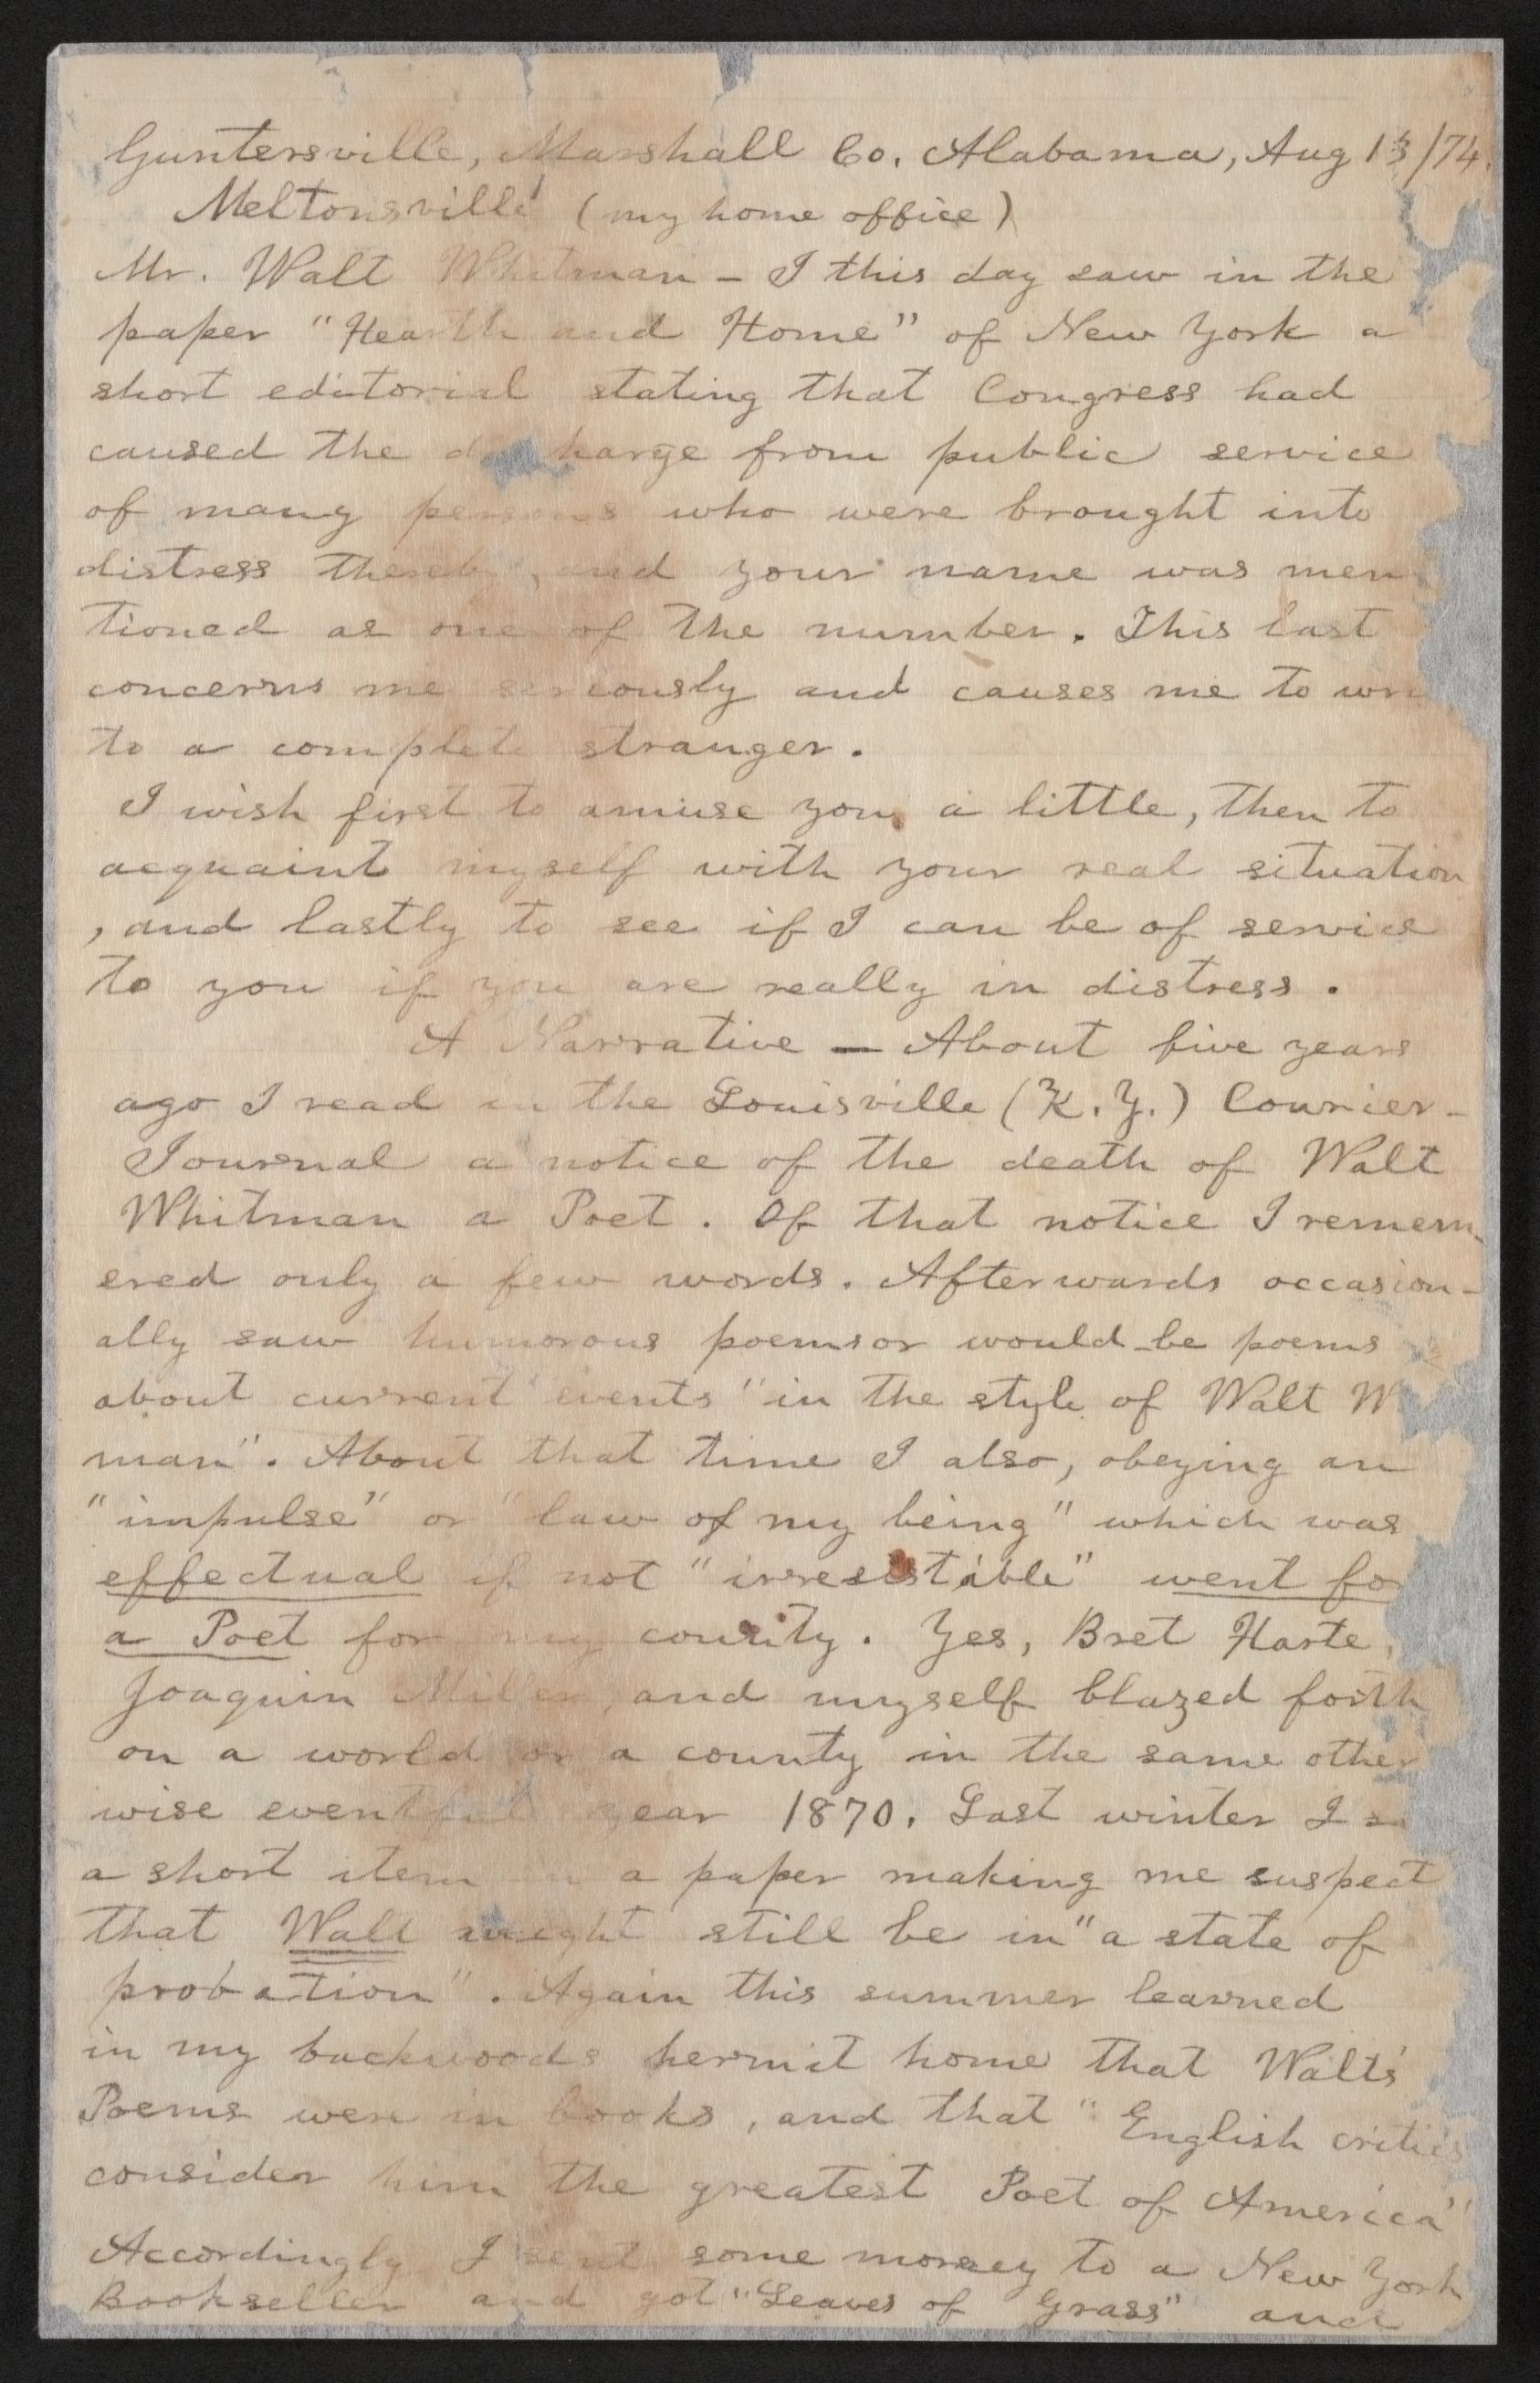 Guntersville, Marshall Co. Alabama, Aug 13/74.
Meltonsville (my home office)
Mr. Walt Whitman – I this day saw in the
paper "Hearth and Home" of New York a
short editorial stating that Congress had
caused the d harge from public service
of many persons who were brought into
distress thereby, and your name was men
tioned as one of the number. This last
concerns me seriously and causes me to wri
to a complete stranger.
I wish first to amuse you a little, then to
acquaint myself with your real situation
, and lastly to see if I can be of service
to you if you are really in distress.
A Narrative — About five years
ago I read in the Louisville (K.Y.) Courier-
Journal a notice of the death of Walt
Whitman a Poet. Of that notice I remem-
ered only a few words. Afterwards occasion-
ally saw humorous poems or would-be poems
about current events "in the style of Walt W
man". About that time I also, obeying an
"impulse" or "law of my being" which was
effectual if not "irresistable" went fo
a Poet for my county. Yes, Bret Harte,
Joaquin Miller, and myself blazed forth
on a world or a county in the same other
wise eventful year 1870. Last winter I s
a short item in a paper making me suspect
that Walt might still be in "a state of
probation". Again this summer learned
in my backwoods hermit home that Walt's
Poems were in books, and that "English critics
consider him the greatest Poet of America"
Accordingly I sent some money to a New York
Bookseller and got "Leaves of Grass" and